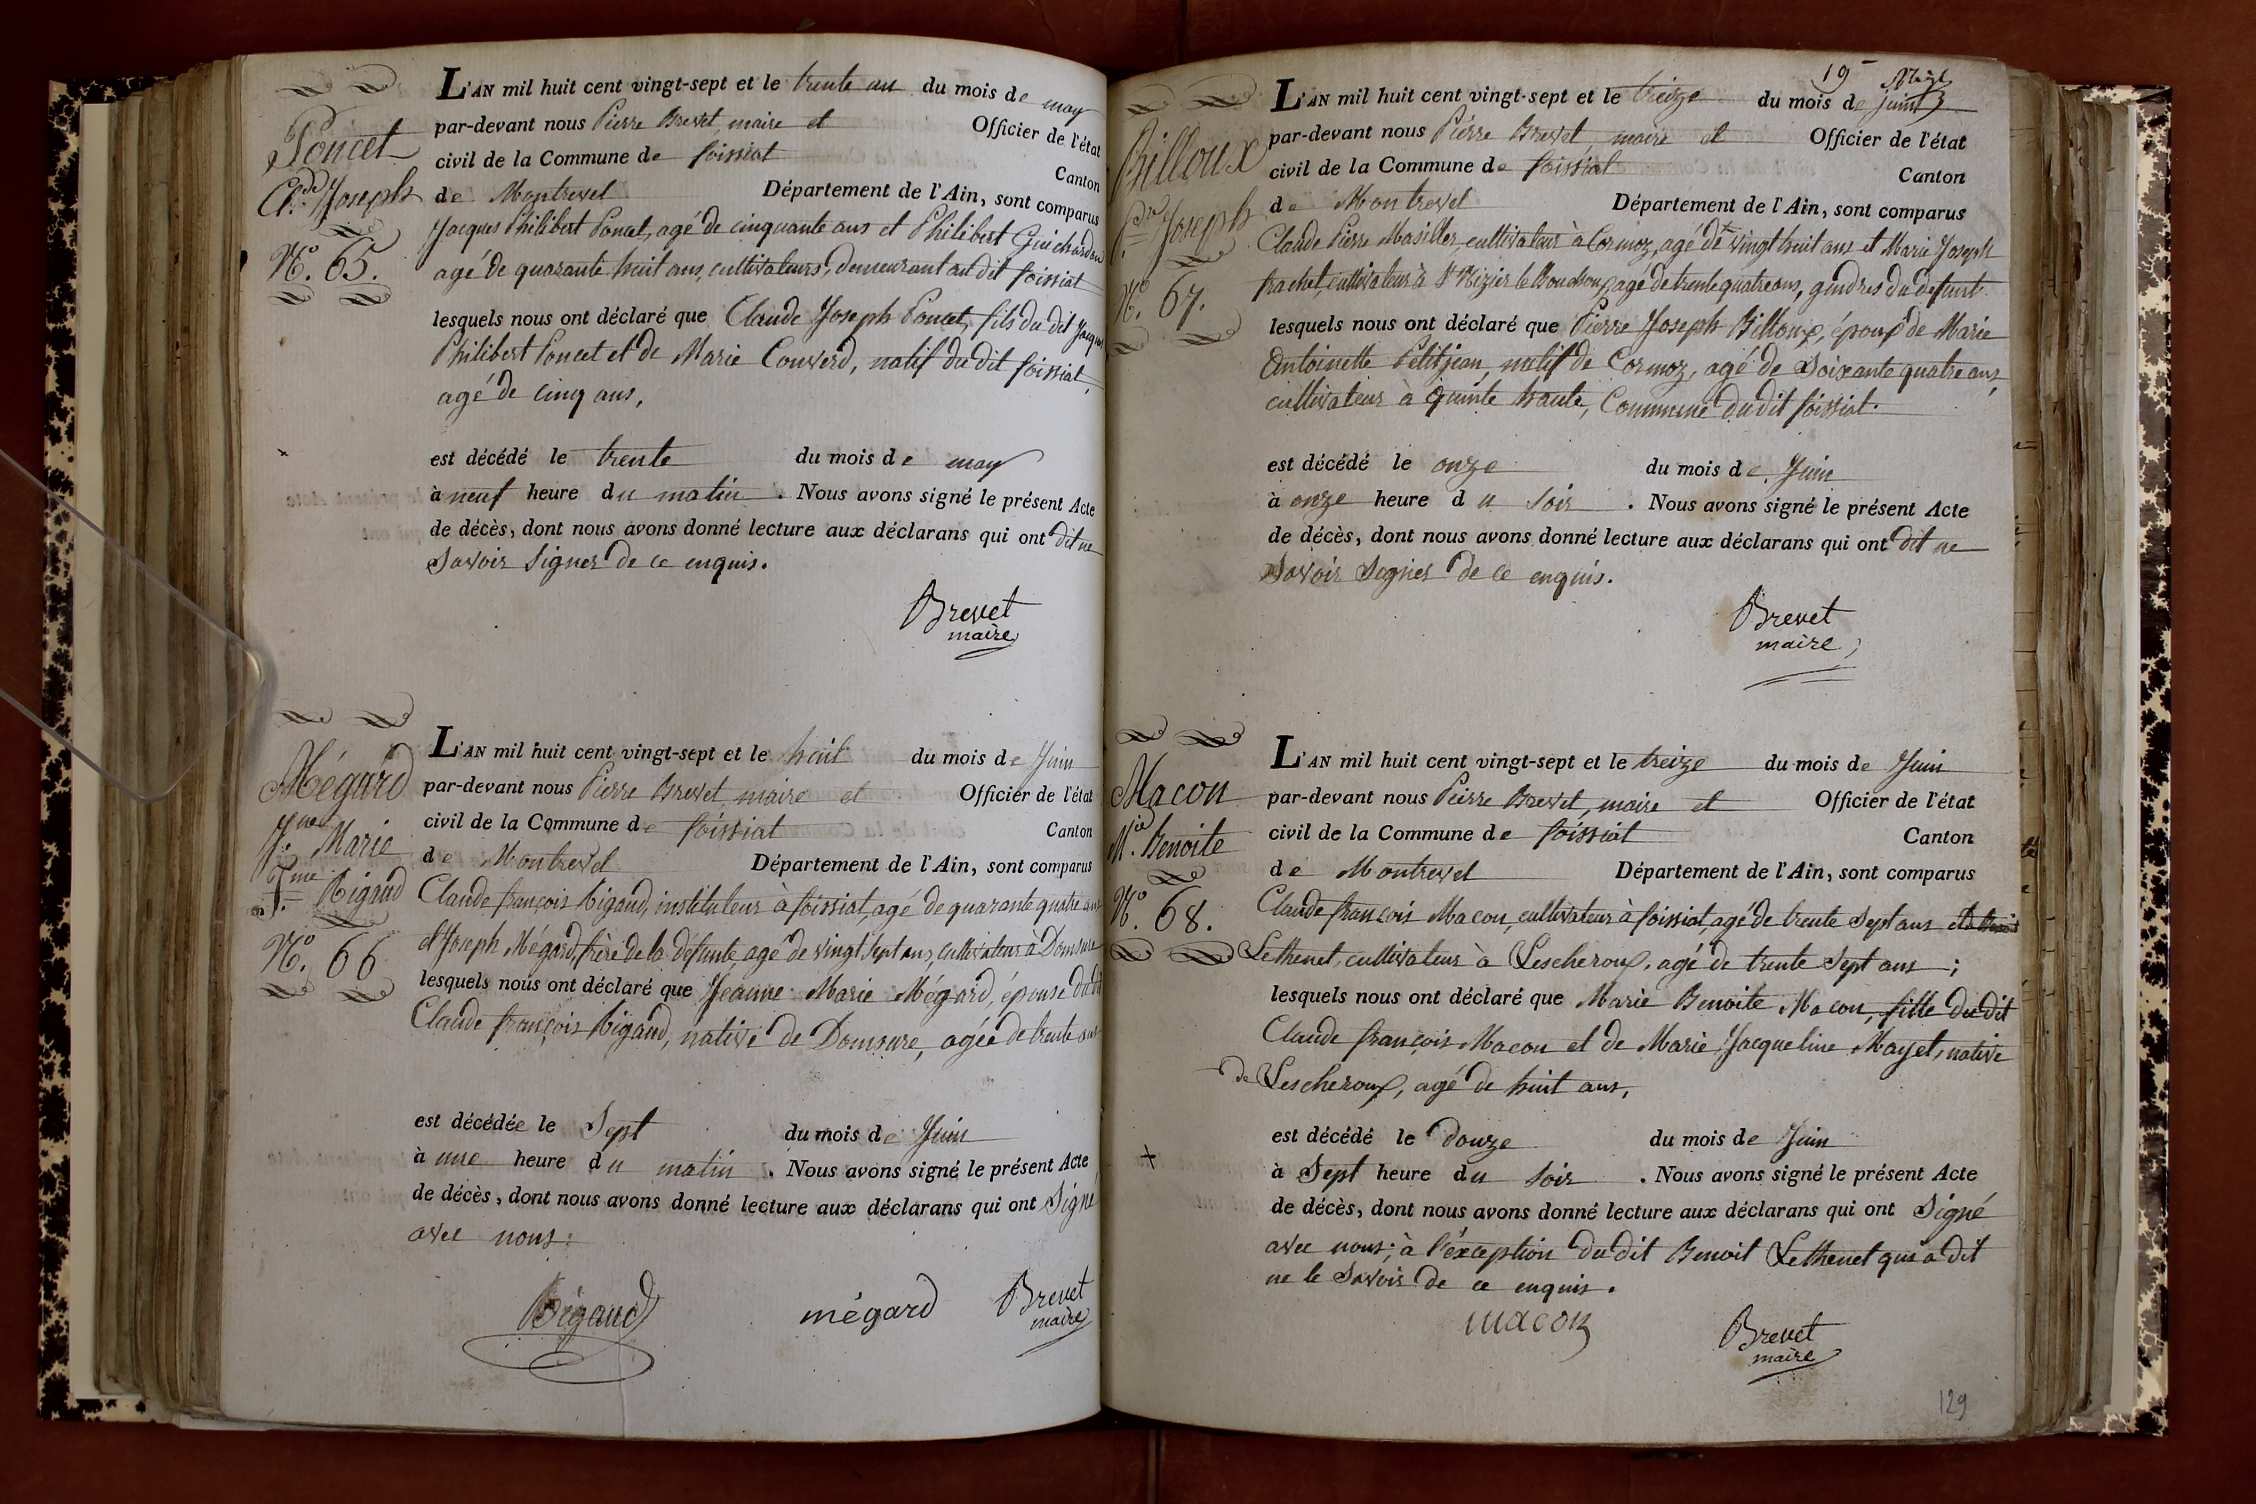 Poncet
Cl.de Joseph
N.o 65.
L'AN mil huit cent vingt-sept et le trente un du mois de may
par-devant nous Pierre Brevet, maire et Officier de l'état
civil de la Commune de foissiat Canton
de Montrevel Département de l'Ain, sont comparus
Jacques Philibert Poncet, agé de cinquante ans et Philibert Guichardan
agé de quarante huit ans, cultivateurs, demeurant au dit foissiat
lesquels nous ont déclaré que Claude Joseph Poncet, fils du dit Jacques
Philibert Poncet et de Marie Couverd, natif du dit foissiat,
agé de cinq ans,
est décédé le trente du mois de may
à neuf heure du matin. Nous avons signé le présent Acte
de décès, dont nous avons donné lecture aux déclarans qui ont dit ne
Savoir Signer de ce enquis.
Brevet
maire
Mégard
J.ne Marie
f.me Rigaud
N.o 66
L'AN mil huit cent vingt-sept et le huit du mois de Juin
par-devant nous Pierre Brevet, maire et Officier de l'état
civil de la Commune de foissiat Canton
de Montrevel Département de l'Ain, sont comparus
Claude françois Rigaud, instituteur à foissiat, agé de quarante quatre ans
et Joseph Mégard, frère de la défunte, agé de vingt Sept ans, cultivateur à Domsure
lesquels nous ont déclaré que Jeanne Marie Mégard, épouse du dit
Claude françois Rigaud, native de Domsure, agée de trente ans
est décédée le Sept du mois de Juin
à une heure du matin. Nous avons signé le présent Acte
de décès, dont nous avons donné lecture aux déclarans qui ont Signé
avec nous:
Rigaud
mégard
Brevet
maire
19
Billoux
P.re Joseph
N.o 67.
L'AN mil huit cent vingt-sept et le treize du mois de juin
par-devant nous Pierre Brevet, maire et Officier de l'état
civil de la Commune de foissiat Canton
de Montrevel Département de l'Ain, sont comparus
Claude Pierre Masiller, cultivateur à Cormoz, agé de vingt huit ans et Marie Joseph
frachet, cultivateur à St Nizier le Bouchoux, agé de trente quatre ans, gendres du défunt
lesquels nous ont déclaré que Pierre Joseph Billoux, époux de Marie
Antoinette Petitjean, natif de Cormoz, agé de Soixante quatre ans,
cultivateur à Quinte haute, Commune du dit foissiat.
est décédé le onze du mois de Juin
à onze heure du Soir. Nous avons signé le présent Acte
de décès, dont nous avons donné lecture aux déclarans qui ont dit ne
Savoir Signer de ce enquis.
Brevet
maire
Macon
M.ie Benoite
N.o 68.
L'AN mil huit cent vingt-sept et le treize du mois de Juin
par-devant nous Pierre Brevet, maire et Officier de l'état
civil de la Commune de foissiat Canton
de Montrevel Département de l'Ain, sont comparus
Claude françois Macon, cultivateur à foissiat, agé de trente Sept ans et Benoit
Lethenet, cultivateur à Lescheroux, agé de trente Sept ans;
lesquels nous ont déclaré que Marie Benoite Macon, fille du dit
Claude françois Macon et de Marie Jacqueline Mayet, native
de Lescheroux, agé de huit ans,
est décédé le douze du mois de Juin
à Sept heure du Soir. Nous avons signé le présent Acte
de décès, dont nous avons donné lecture aux déclarans qui ont Signé
avec nous; à l'éxception du dit Benoit Lethenet qui a dit
ne le Savoir de ce enquis.
macon
Brevet
maire
129